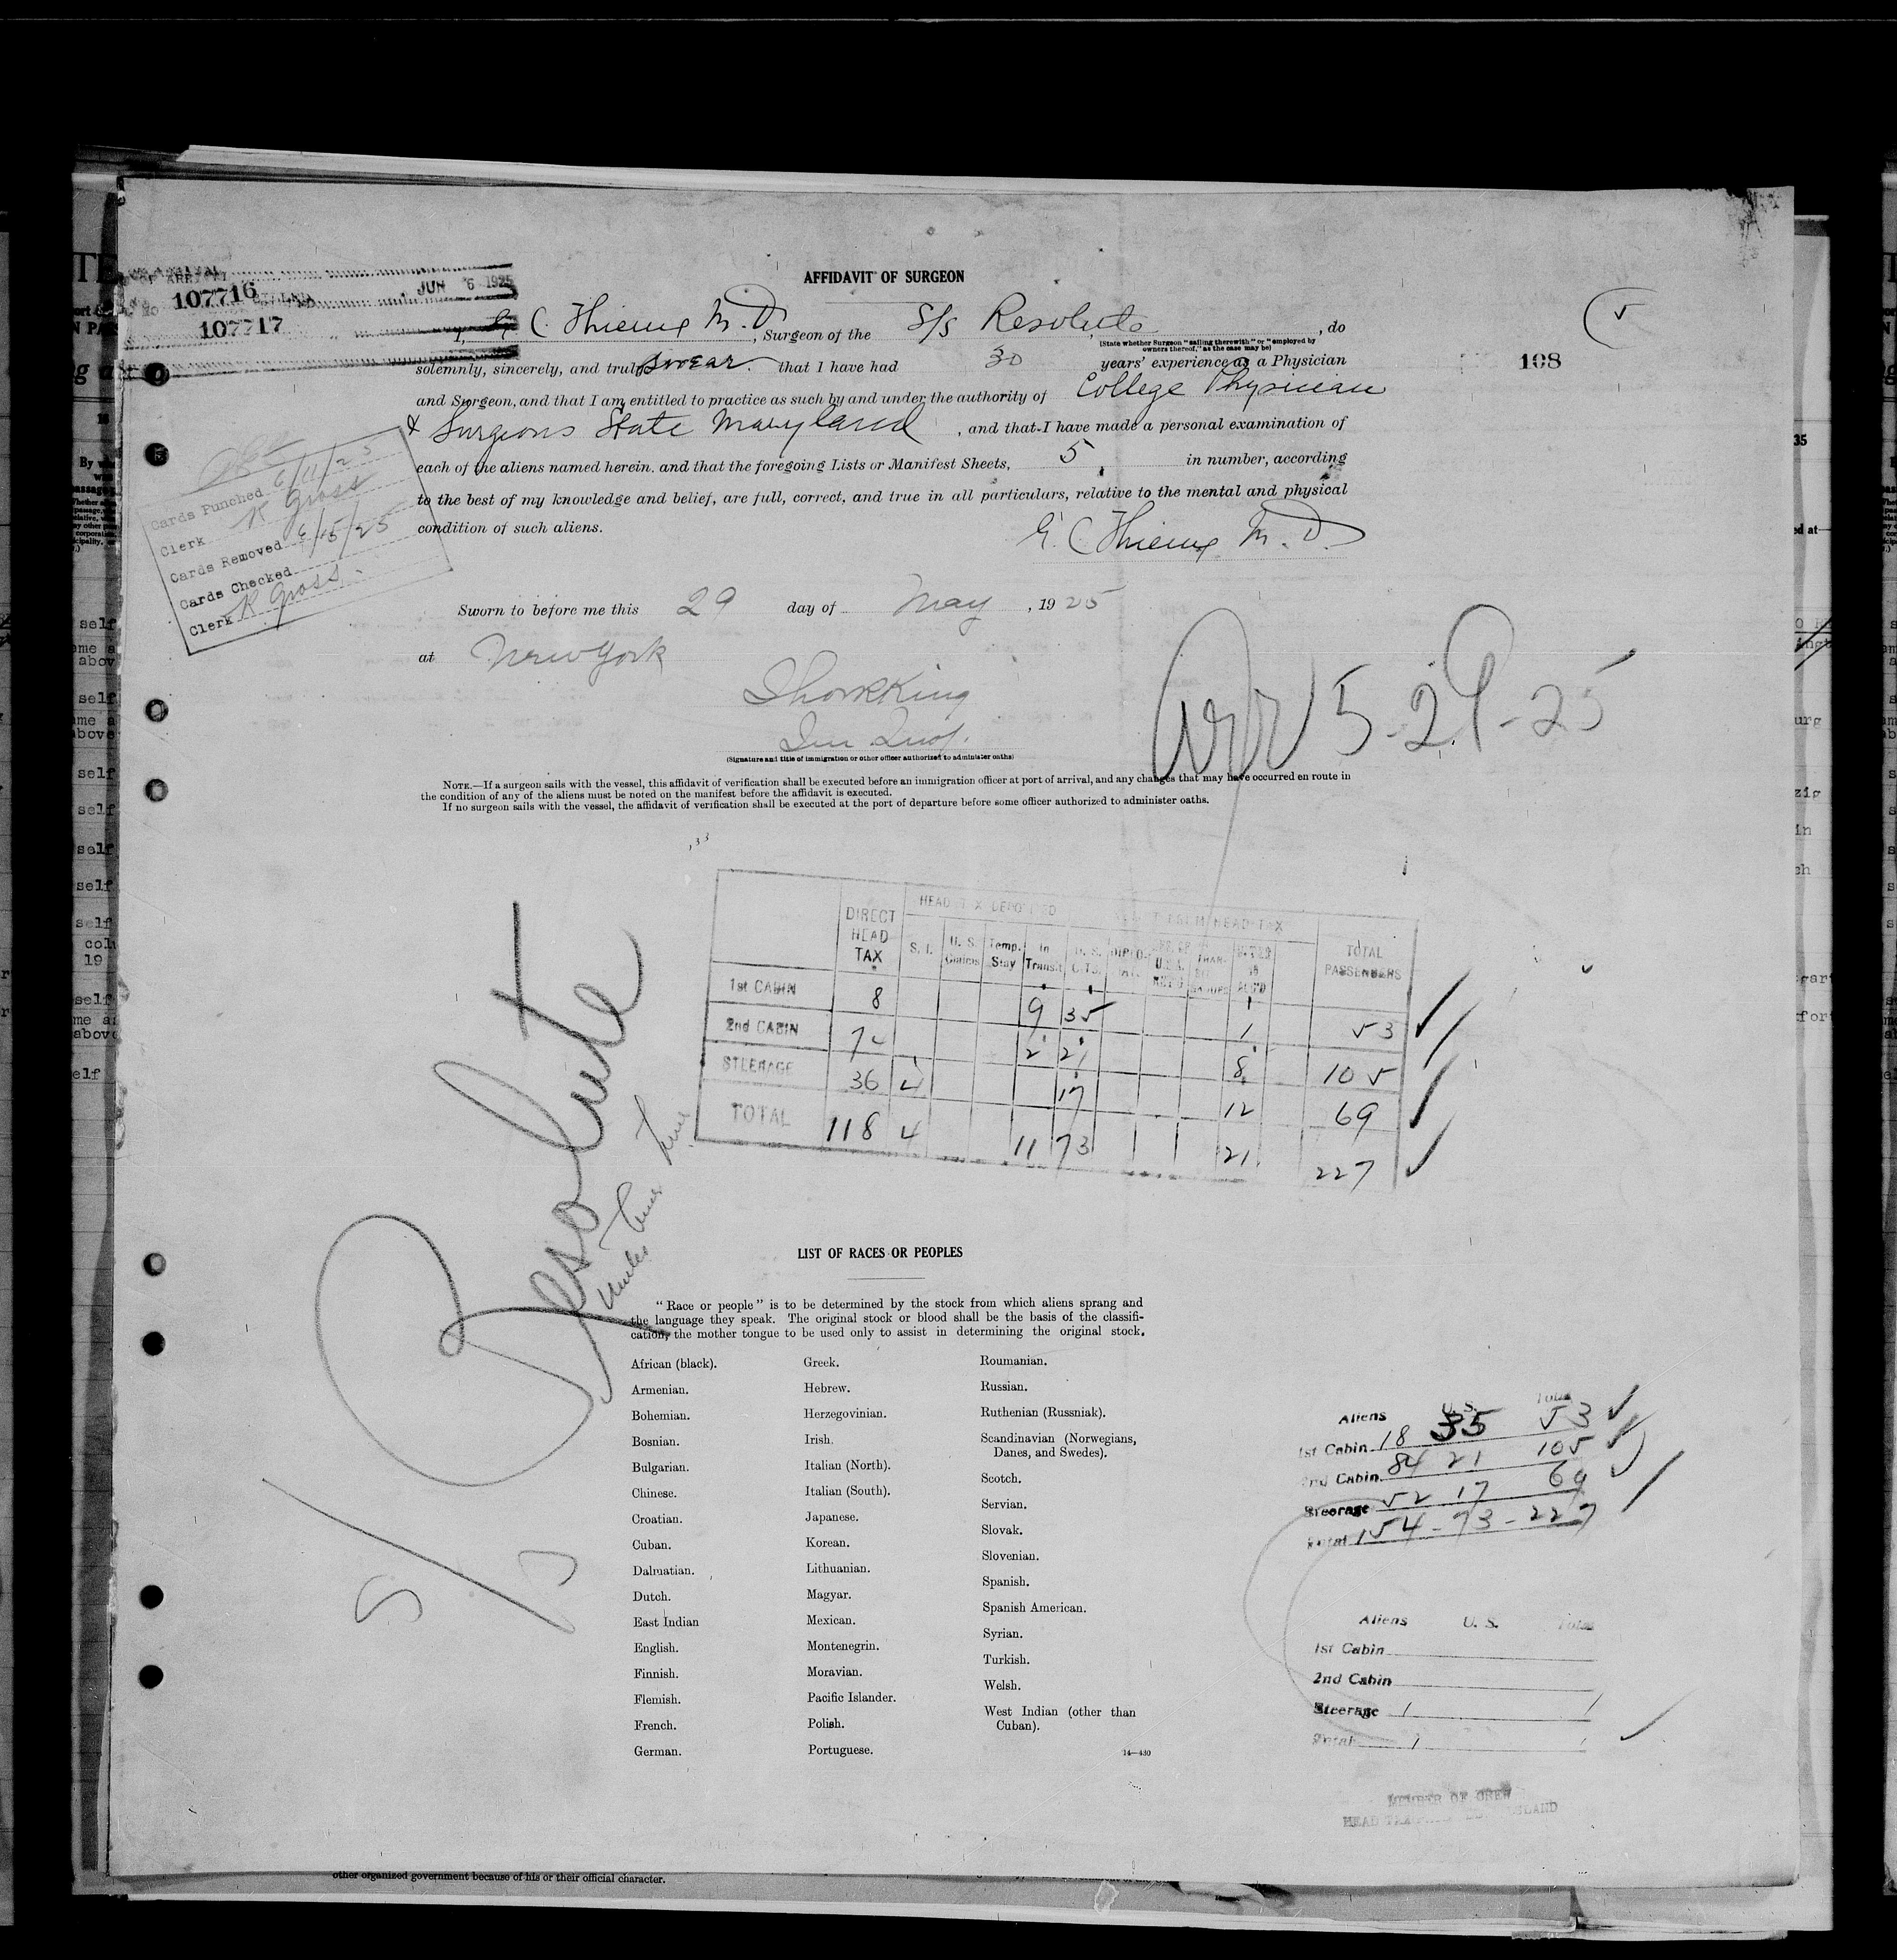 AFFIDAVIT OF SURGEON
107716
JUN 6 1925
107717
I, G. C. Thieme M.D., Surgeon of the S/s Resolute, do
(State whether Surgeon "sailing therewith" or "employed by
owners thereof," as the case may be)
solemnly, sincerely, and truly swear that I have had 30 years' experience as a Physician
108
and Surgeon, and that I am entitled to practice as such by and under the authority of College Physician
& Surgeons State Maryland, and that I have made a personal examination of
each of the aliens named herein, and that the foregoing Lists or Manifest Sheets, 5, in number, according
to the best of my knowledge and belief, are full, correct, and true in all particulars, relative to the mental and physical
condition of such aliens.
G. C. Thieme M.D.
Cards Punched 6/11/25
Clerk K Gross
Cards Removed 6/15/25
Cards Checked
Clerk K Gross
Sworn to before me this 29 day of May, 1925
at New York
Imm Insp.
(Signature and title of immigration or other officer authorized to administer oaths)
Arr 5-29-25
NOTE.—If a surgeon sails with the vessel, this affidavit of verification shall be executed before an immigration officer at port of arrival, and any changes that may have occurred en route in
the condition of any of the aliens must be noted on the manifest before the affidavit is executed.
If no surgeon sails with the vessel, the affidavit of verification shall be executed at the port of departure before some officer authorized to administer oaths.
HEAD TAX DEPOSITED
HEAD TAX
DIRECT HEAD TAX S. I. U. S. Claims Temp. Stay In Transit U. S. CTS. TOTAL PASSENGERS
1st CABIN 8 9 35 1 53
2nd CABIN 74 2 21 8 105
STEERAGE 36 4 17 12 69
TOTAL 118 4 11 73 21 227
S/S Resolute
United Amer Lines
LIST OF RACES OR PEOPLES
"Race or people" is to be determined by the stock from which aliens sprang and
the language they speak. The original stock or blood shall be the basis of the classifi-
cation, the mother tongue to be used only to assist in determining the original stock.
African (black).
Armenian.
Bohemian.
Bosnian.
Bulgarian.
Chinese.
Croatian.
Cuban.
Dalmatian.
Dutch.
East Indian
English.
Finnish.
Flemish.
French.
German.
Greek.
Hebrew.
Herzegovinian.
Irish.
Italian (North).
Italian (South).
Japanese.
Korean.
Lithuanian.
Magyar.
Mexican.
Montenegrin.
Moravian.
Pacific Islander.
Polish.
Portuguese.
Roumanian.
Russian.
Ruthenian (Russniak).
Scandinavian (Norwegians,
Danes, and Swedes).
Scotch.
Servian.
Slovak.
Slovenian.
Spanish.
Spanish American.
Syrian.
Turkish.
Welsh.
West Indian (other than
Cuban).
14—430
Aliens U. S. Total
1st Cabin 18 35 53
2nd Cabin 84 21 105
Steerage 52 17 69
Total 154-73-227
Aliens U. S. Total
1st Cabin
2nd Cabin
Steerage 1 1
Total 1 1
MEMBER OF CREW
HEAD TAX ISLAND
other organized government because of his or their official character.